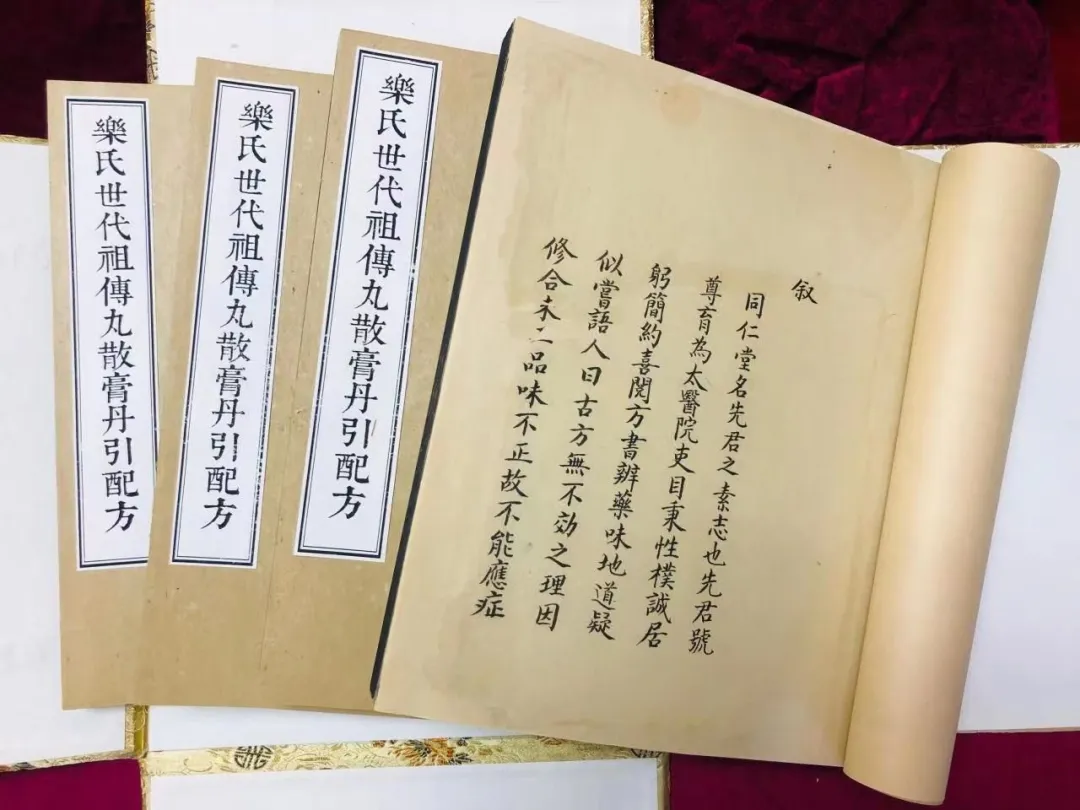 樂氏世代祖傳丸散膏丹引配方
樂氏世代祖傳丸散膏丹引配方
樂氏世代祖傳丸散膏丹引配方
叙
同仁堂名先君之素志也先君號
尊育為太醫院吏目秉性樸誠居
躬簡約喜閱方書辨藥味地道疑
似嘗語人曰古方無不効之理因
修合未工品味不正故不能應症